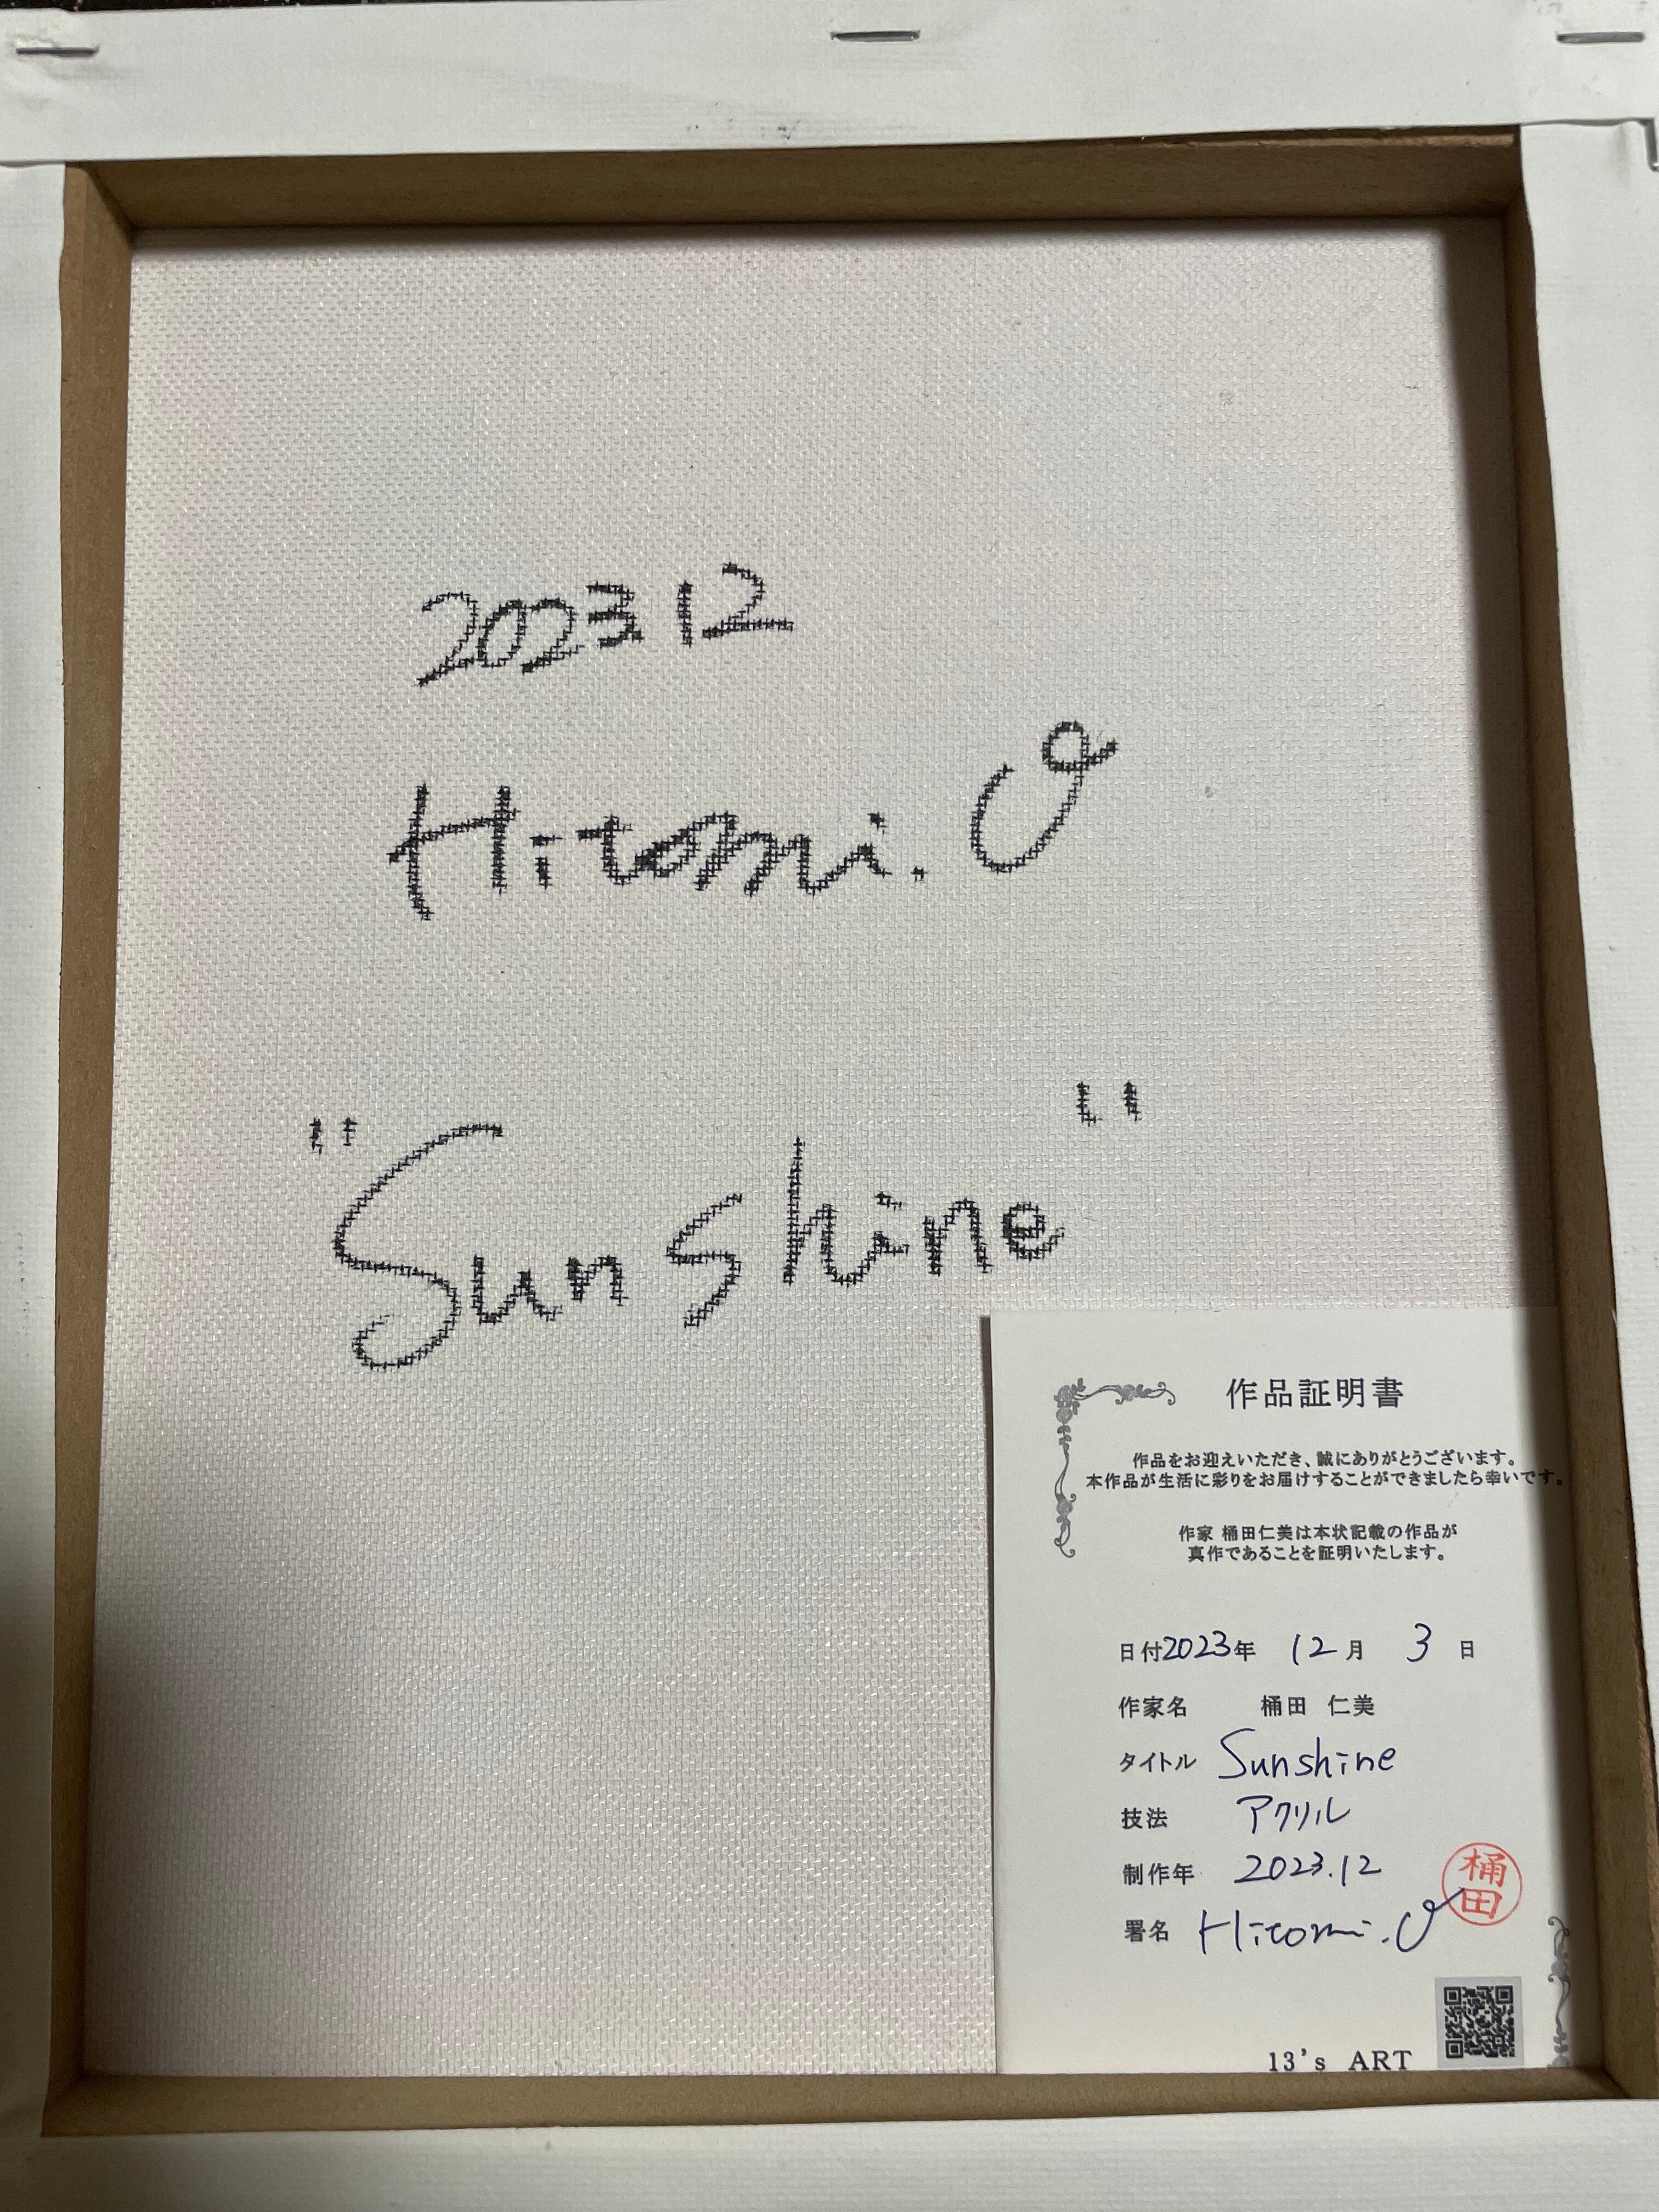 2023 12
Hitomi.O
"Sunshine"
作品証明書
作品をお迎えいただき、誠にありがとうございます。
本作品が生活に彩りをお届けすることができましたら幸いです。
作家 桶田仁美は本状記載の作品が
真作であることを証明いたします。
日付2023年 12月 3日
作家名 桶田 仁美
タイトル Sunshine
技法 アクリル
制作年 2023.12
桶田
署名 Hitomi.O
13's ART